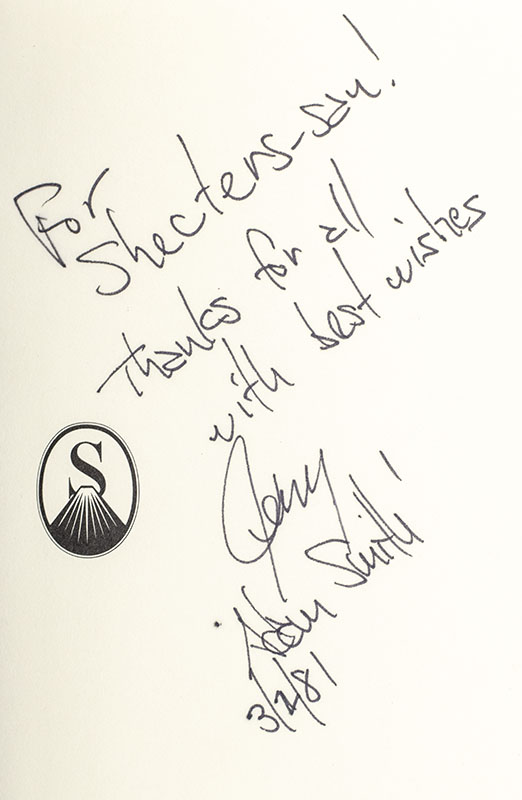 For
Shectens-san!
Thanks for all
with best wishes
Jerry
'Adam Smith'
3/2/81
S